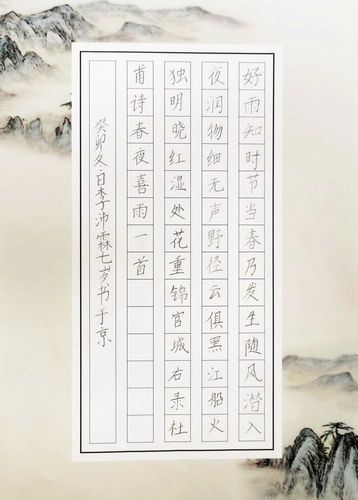 好雨知时节当春乃发生随风潜入
夜润物细无声野径云俱黑江船火
独明晓红湿处花重锦官城右录社
甫诗春夜喜雨一首
癸卯冬日李沛霖七岁书于京